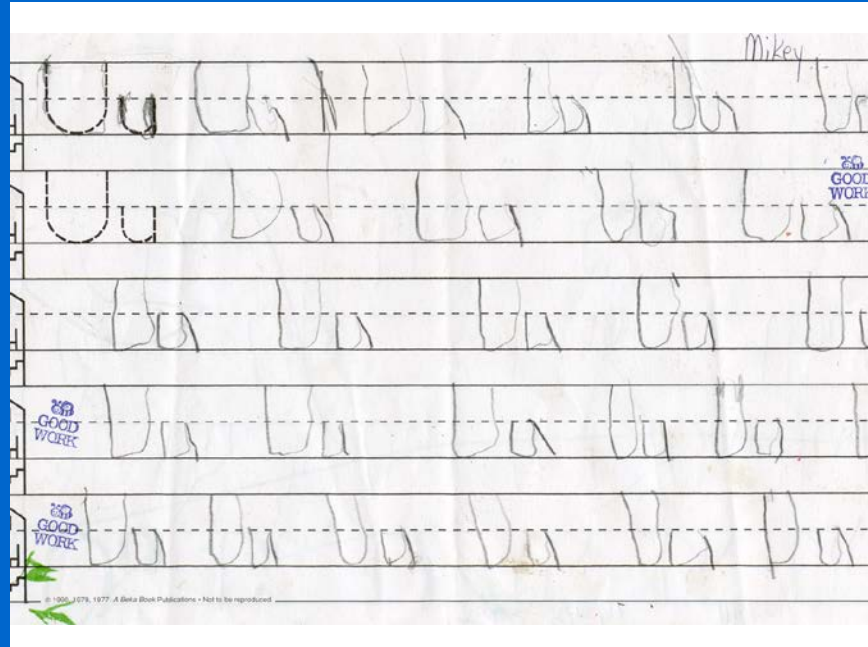 Mikey
Uu Uu Uu Uu Uu Uu
GOOD
WORK
Uu Uu Uu Uu Uu
Uu Uu Uu Uu Uu
GOOD
WORK
Uu Uu Uu Uu Uu
GOOD
WORK
Uu Uu Uu Uu Uu Uu
© 1979, 1977 A Beka Book Publications • Not to be reproduced.